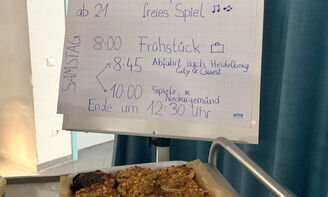 ab 21 freies Spiel
SAMSTAG
8:00 Frühstück
8:45 Abfahrt nach Heidelberg
City & Quest
10:00 Spiele in
Neckargemünd
Ende um 12:30 Uhr